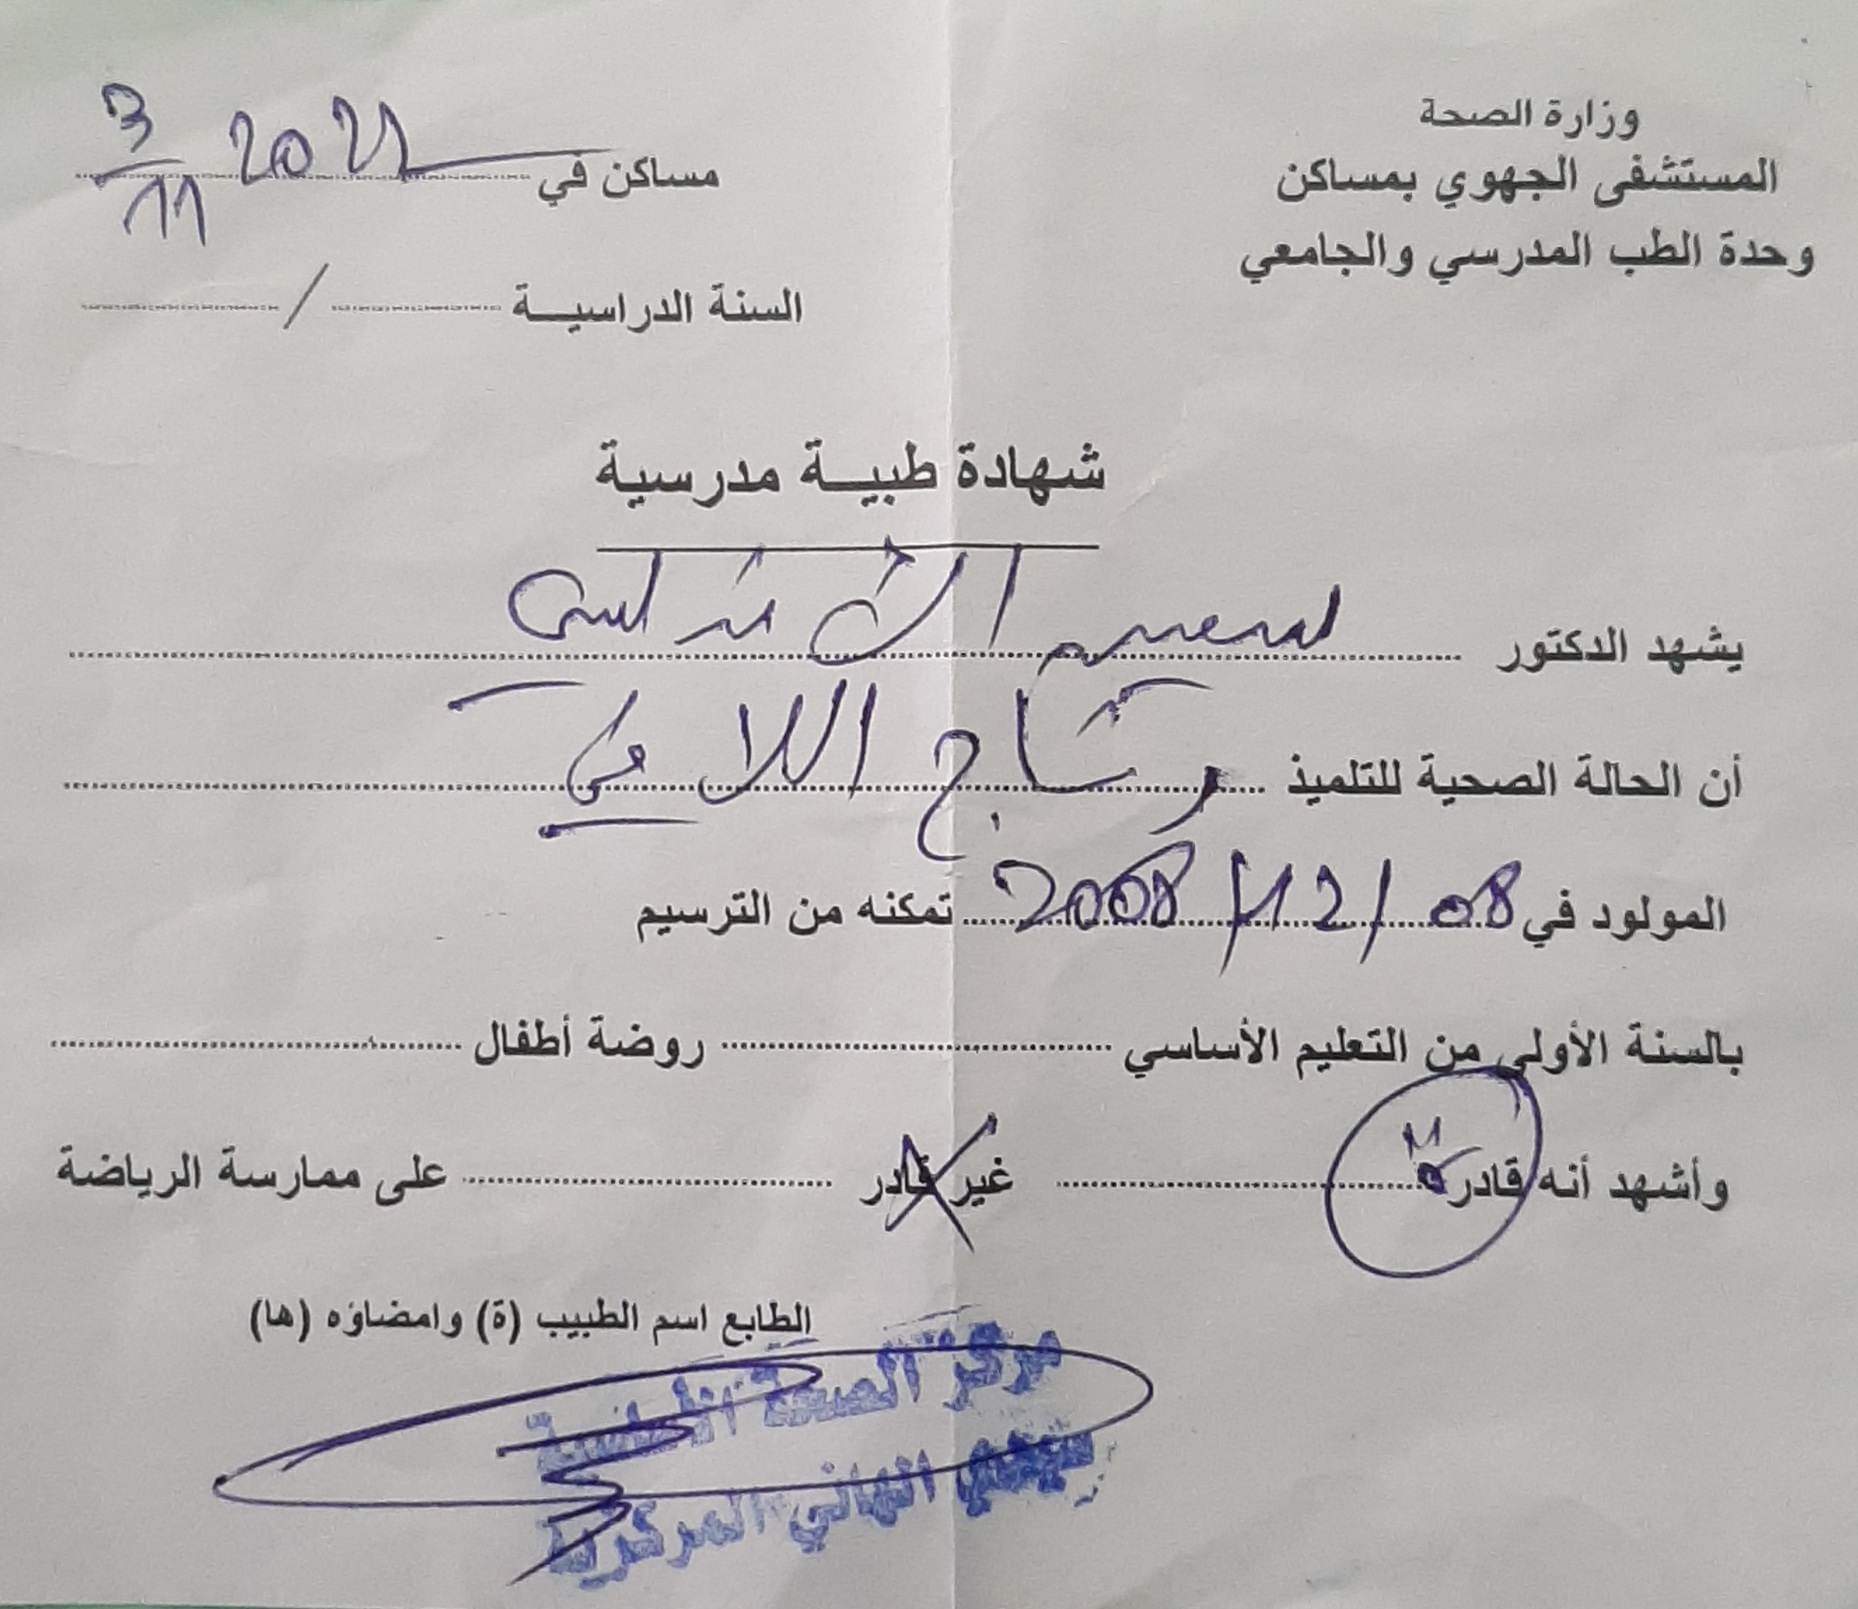 وزارة الصحة
المستشفى الجهوي بمساكن
وحدة الطب المدرسي والجامعي
مساكن في 3/11 2021
السنة الدراسيـــة ............ / ............
شهادة طبيـــة مدرسية
يشهد الدكتور
أن الحالة الصحية للتلميذ رتاج
المولود في 08/12/2008 تمكنه من الترسيم
بالسنة الأولى من التعليم الأساسي ............ روضة أطفال ............
وأشهد أنه قادرة ............ غير قادر ............ على ممارسة الرياضة
الطابع اسم الطبيب (ة) وامضاؤه (ها)
مركز الصحة الأساسية
سيدي الهاني المركزية